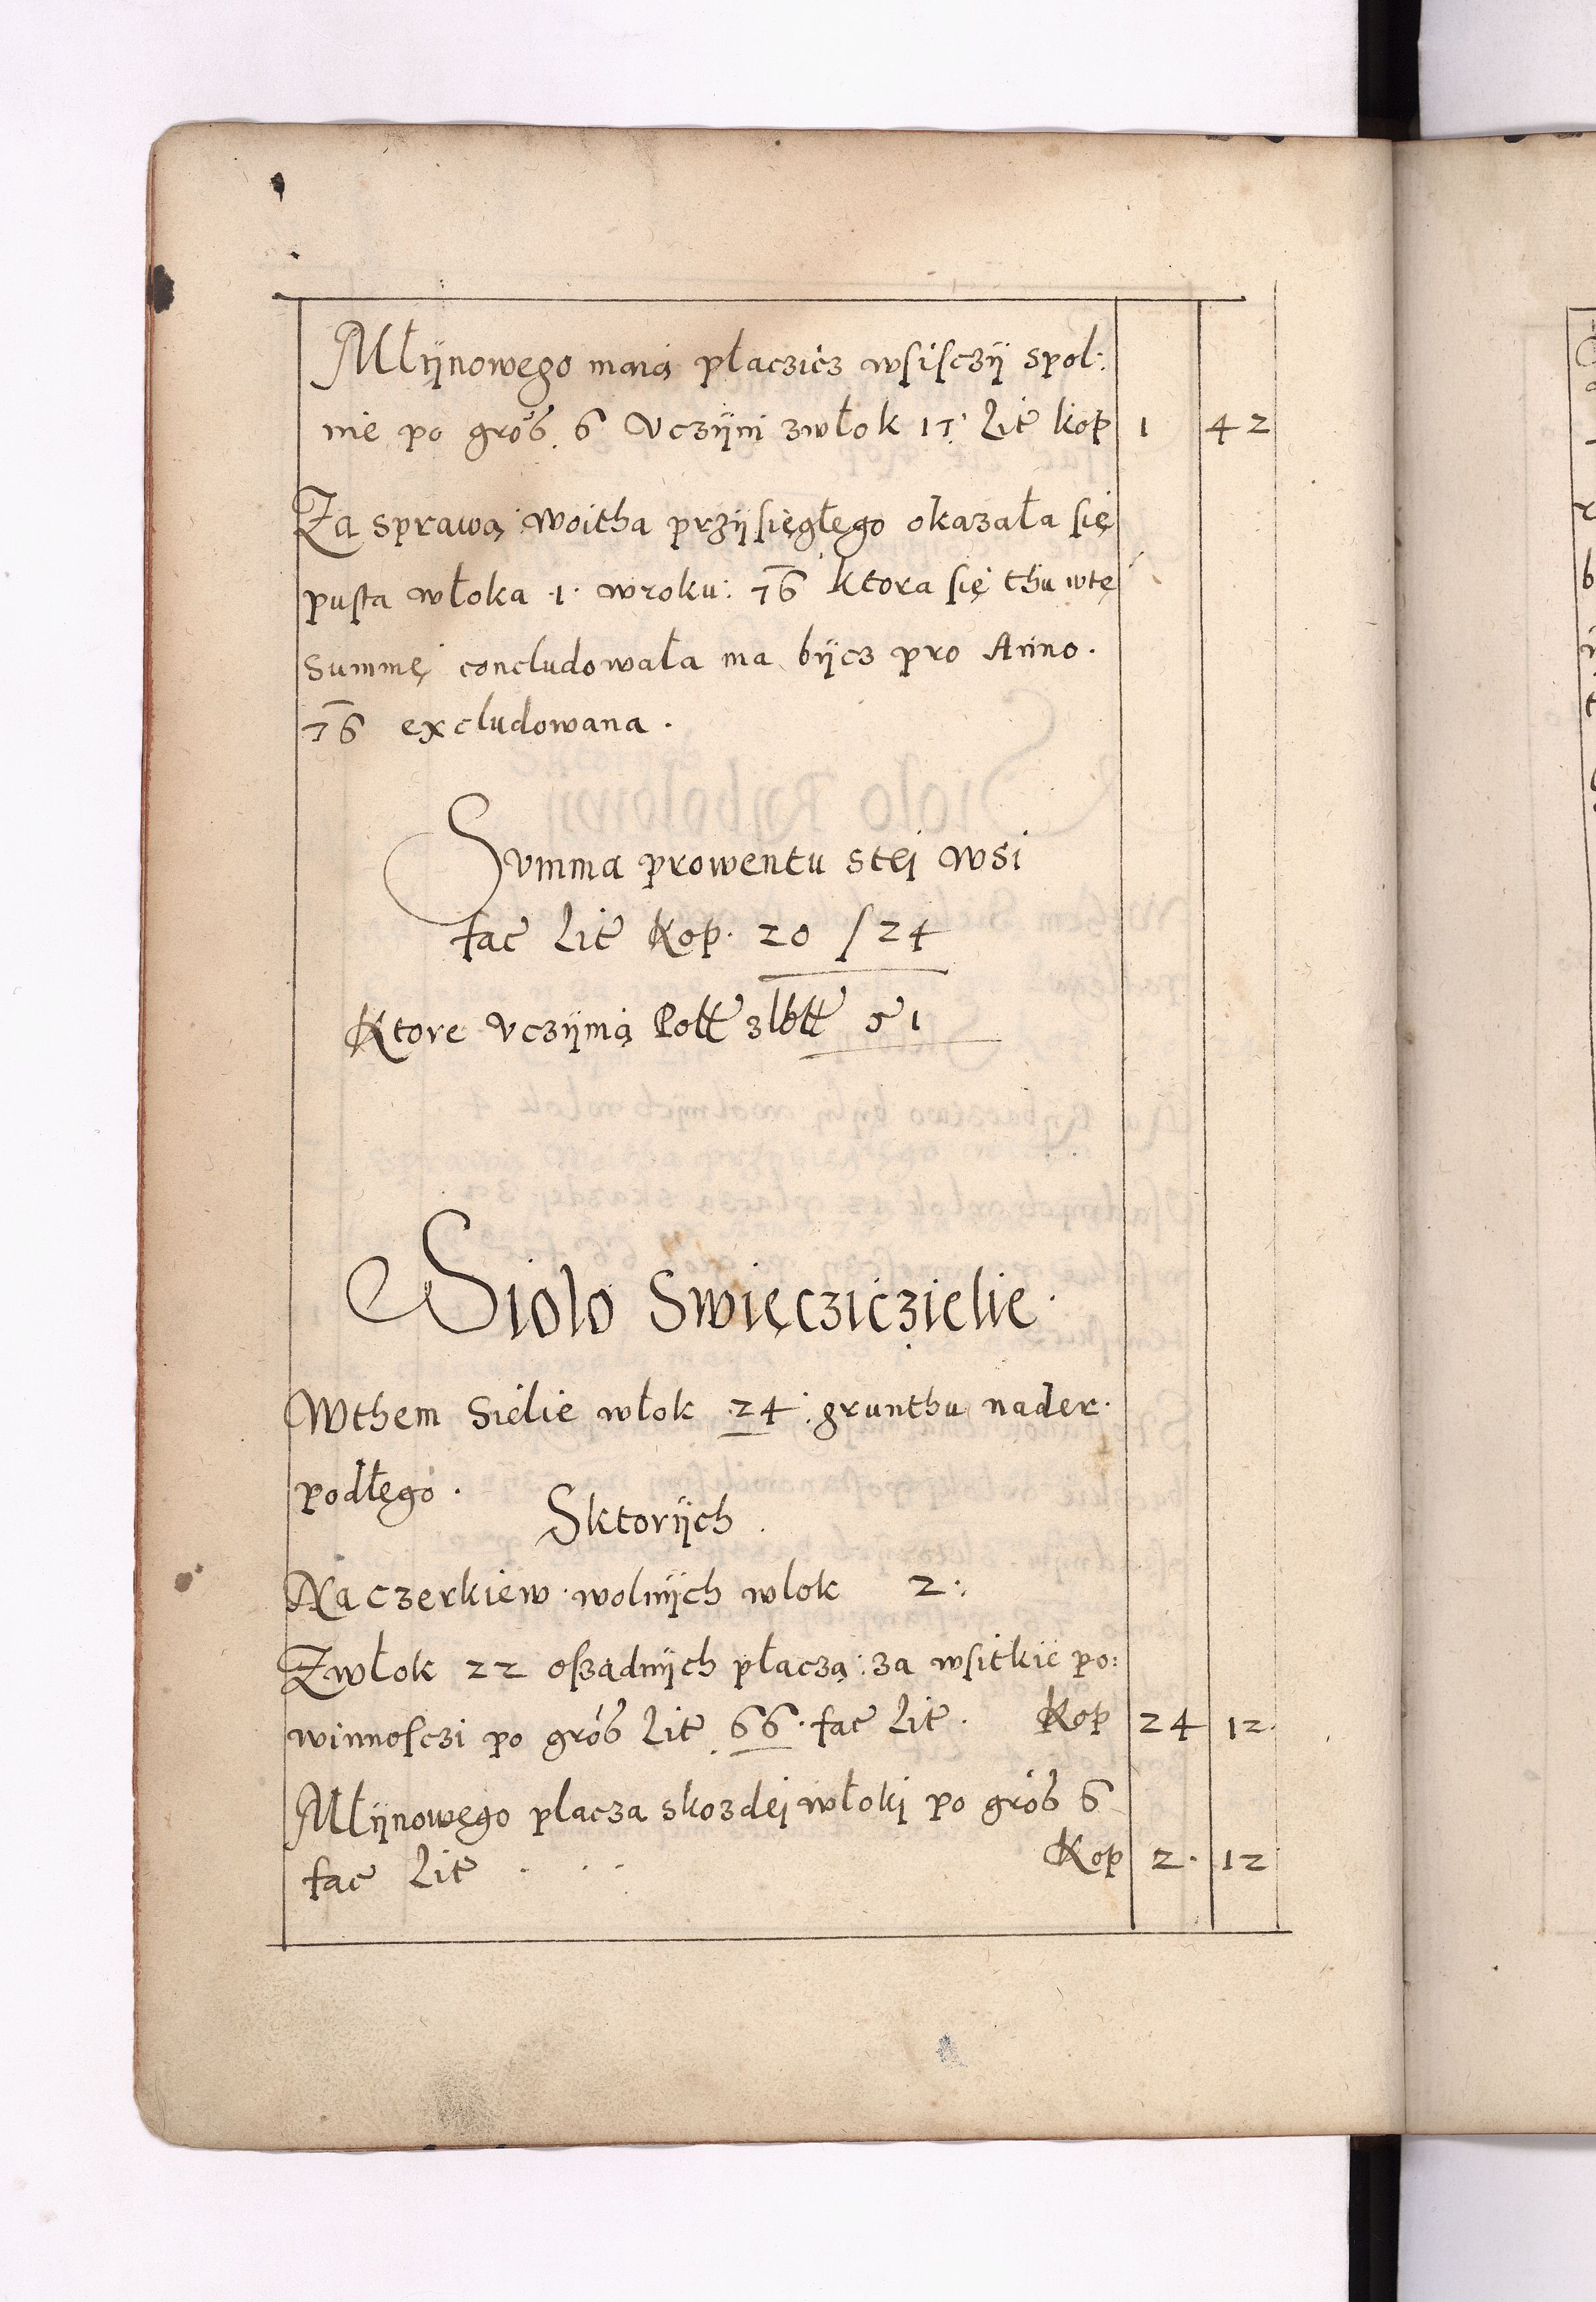 Młÿnowego maią płaczicz wsisczÿ spol:
nie po grōß 6 Vczÿni zwłok 17 Lit̃ kop̃ 1 42
Za sprawą woitha przÿsięgłego okazała się
pusta włoka 1. wroku: 76 ktora się thu wtę
Summę concludowała ma bÿcz pro Anno.
76 excludowana.
Summa prowentu stei wsi
fac̃ Lit̃ Kop̃. 20 / 24
Ktore vczÿnią Poll̃ zlol̃l 51
Siolo Swięcziczielie.
Wthem Sielie włok 24: grunthu nader
podłego.
Sktorÿch
Na czerkiew wolnÿch wlok 2:
Zwłok 22 oszadnÿch płaczą: za wsitkie po:
winnosczi po grōß Lit̃ 66. fac̃ Lit̃. Kop̃ 24 12.
Młÿnowego placza skozdei włoki po grōß 6
fac̃ Lit̃ . . . Kop̃ 2. 12